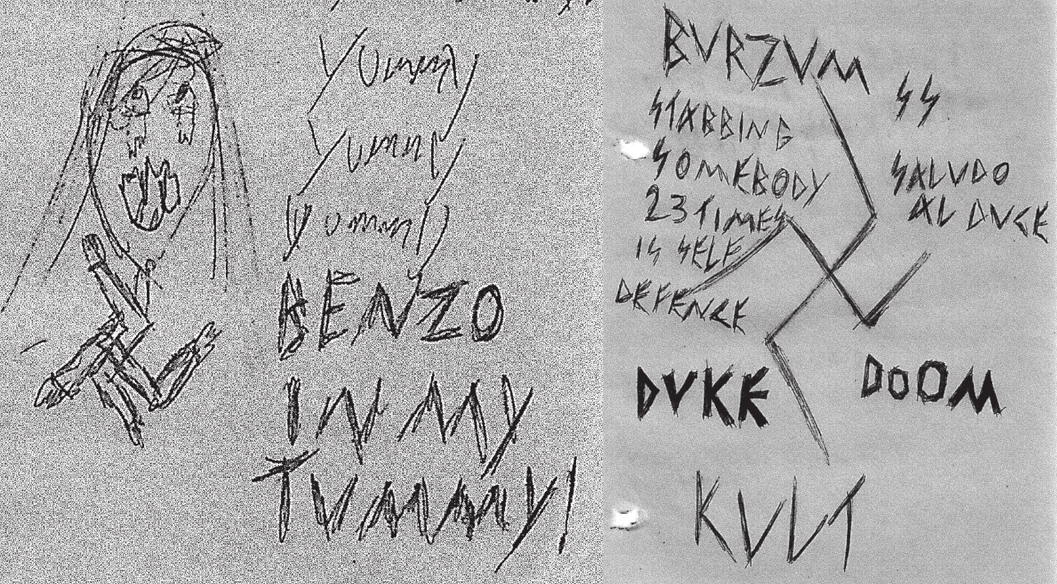 Yummy
Yummy
Yummy
BENZO
IN MY
TVMMMY!
BVRZVM
SS
STABBING
SOMEBODY
23 TIMES
IS SELF
DEFENCE
SALVDO
AL DVCE
DVKE
DOOM
KVLT